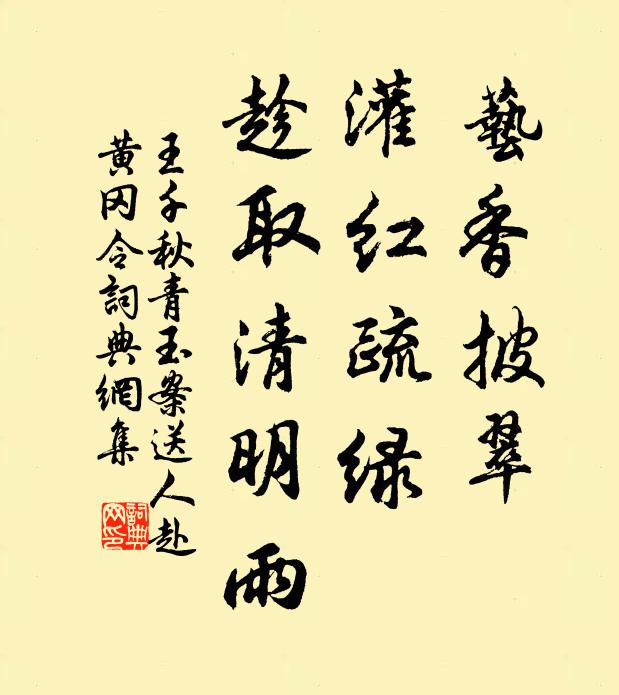 藝香披翠
灌紅疏緑
趁取清明雨
王千秋青玉案送人赴
黄冈令詞典網集
詞典网印